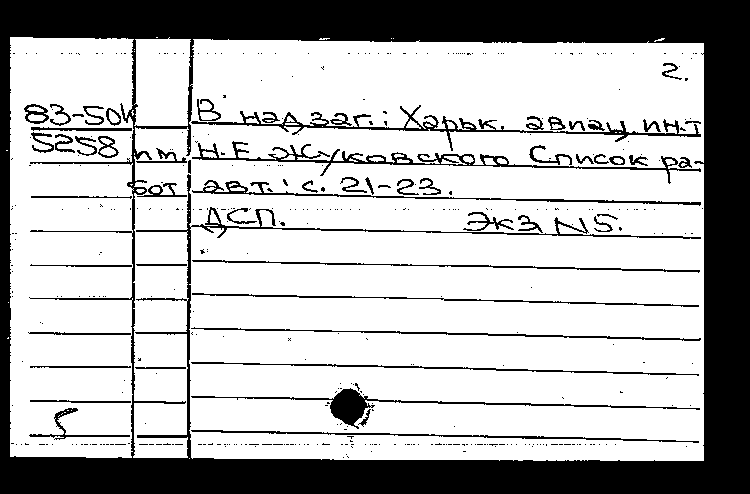 2.
83-50к В надзаг.: Харьк. авиац. ин-т
5258 им. Н.Е. Жуковского Список ра-
бот авт.: с. 21-23.
ДСП. Экз. N5.
5